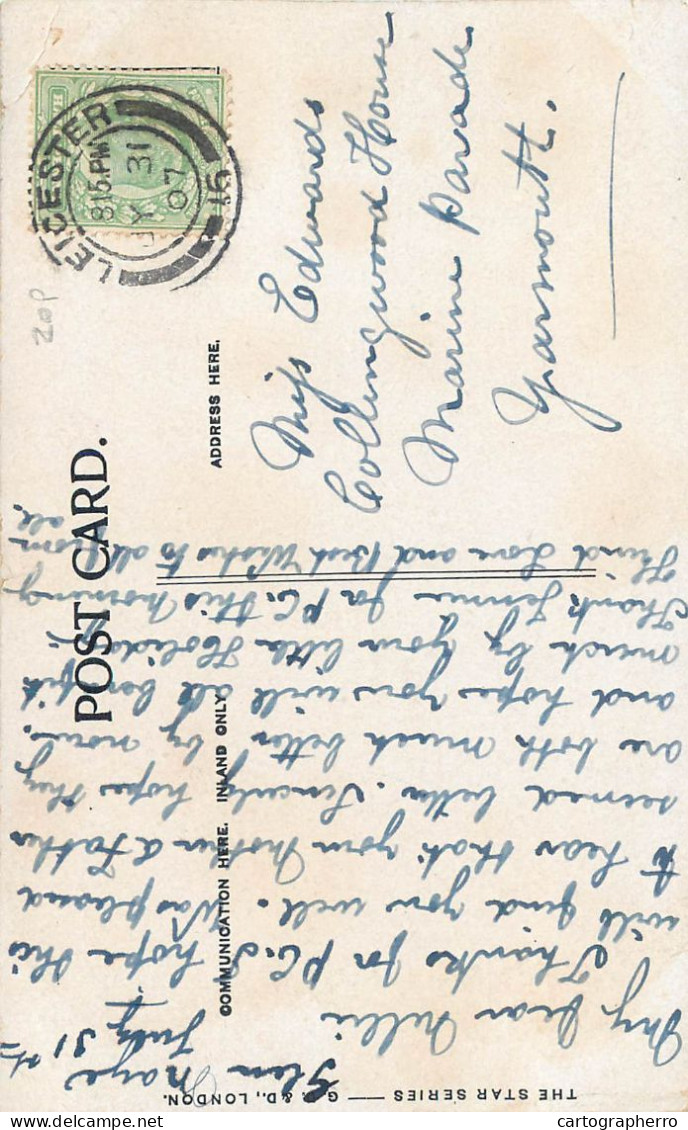 POST CARD.
THE STAR SERIES — G. D. & D., LONDON.
COMMUNICATION HERE. INLAND ONLY
ADDRESS HERE.
LEICESTER
8.15 PM
JY 31
07
16
Miss Edwards
Collingwood House
Marine Parade
Yarmouth.
20P
Glen
July 31st
My Dear Nellie
Thanks for P.C. I hope this
will find you well. Was pleased
to hear that your Mother & Father
seemed better. Sincerely hope they
are both much better by now.
and hope you will all benefit
much by your little Holiday.
Thank Jennie for P.C. this morning
Kind Love and Best Wishes to all from
all.
cartographerro